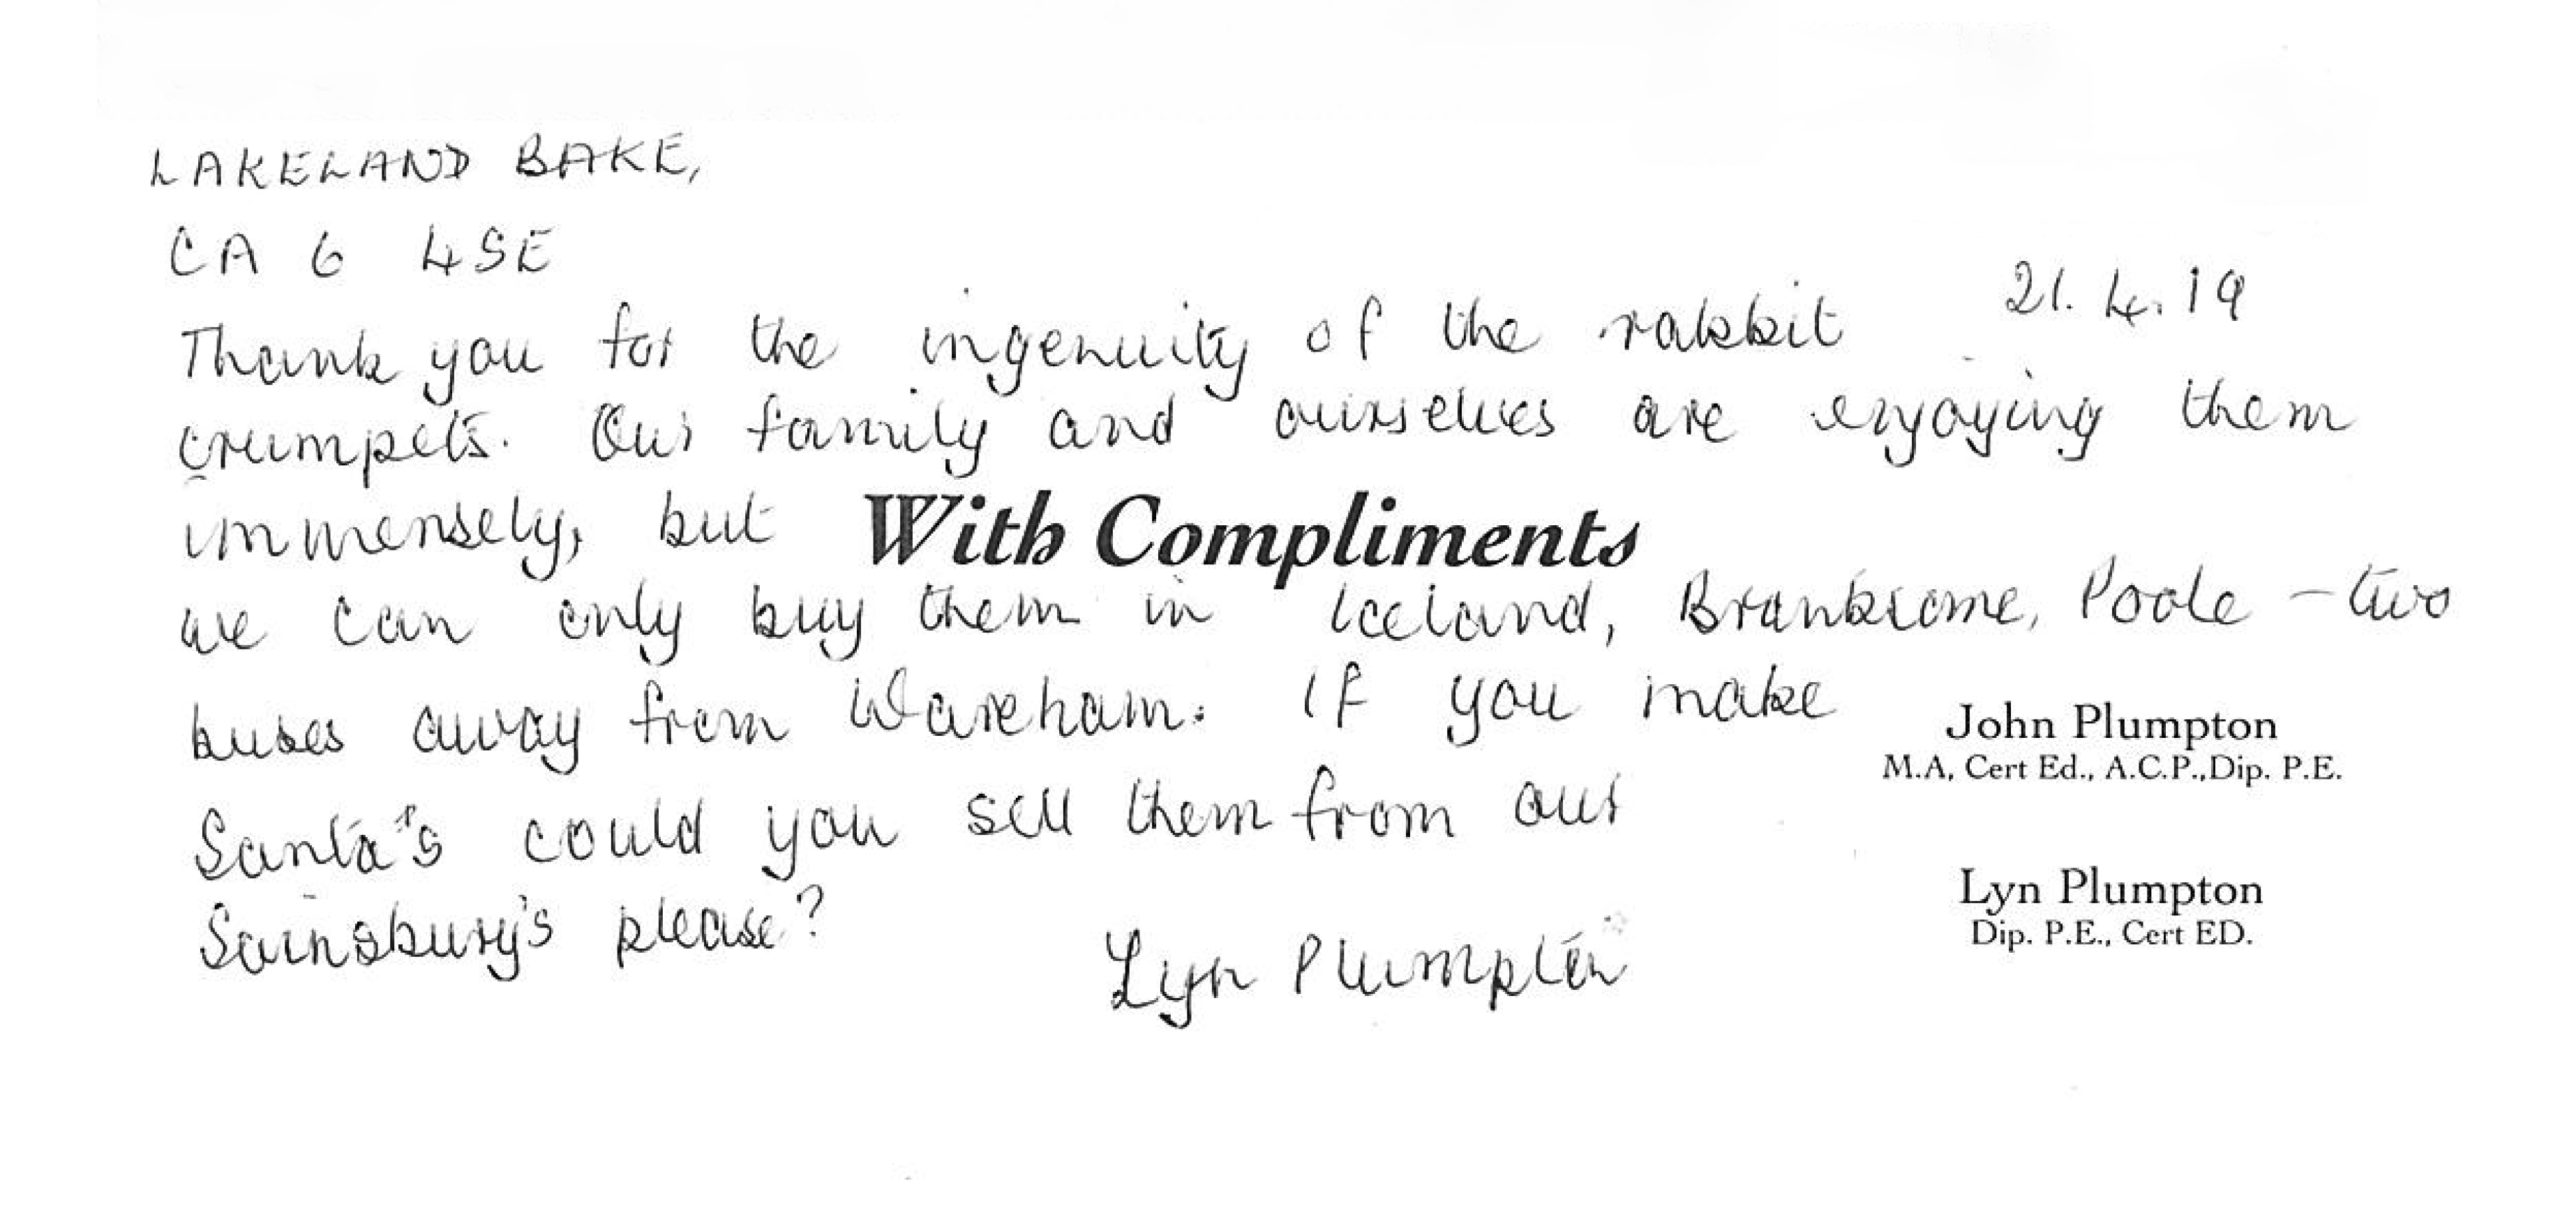 LAKELAND BAKE,
CA 6 4SE
21. 4. 19
Thank you for the ingenuity of the rabbit
crumpets. Our family and ourselves are enjoying them
immensely, but
With Compliments
we can only buy them in Iceland, Branksome, Poole - two
buses away from Wareham. If you make
Santa's could you sell them from our
Sainsbury's please?
Lyn Plumpton
John Plumpton
M.A, Cert Ed., A.C.P.,Dip. P.E.
Lyn Plumpton
Dip. P.E., Cert ED.